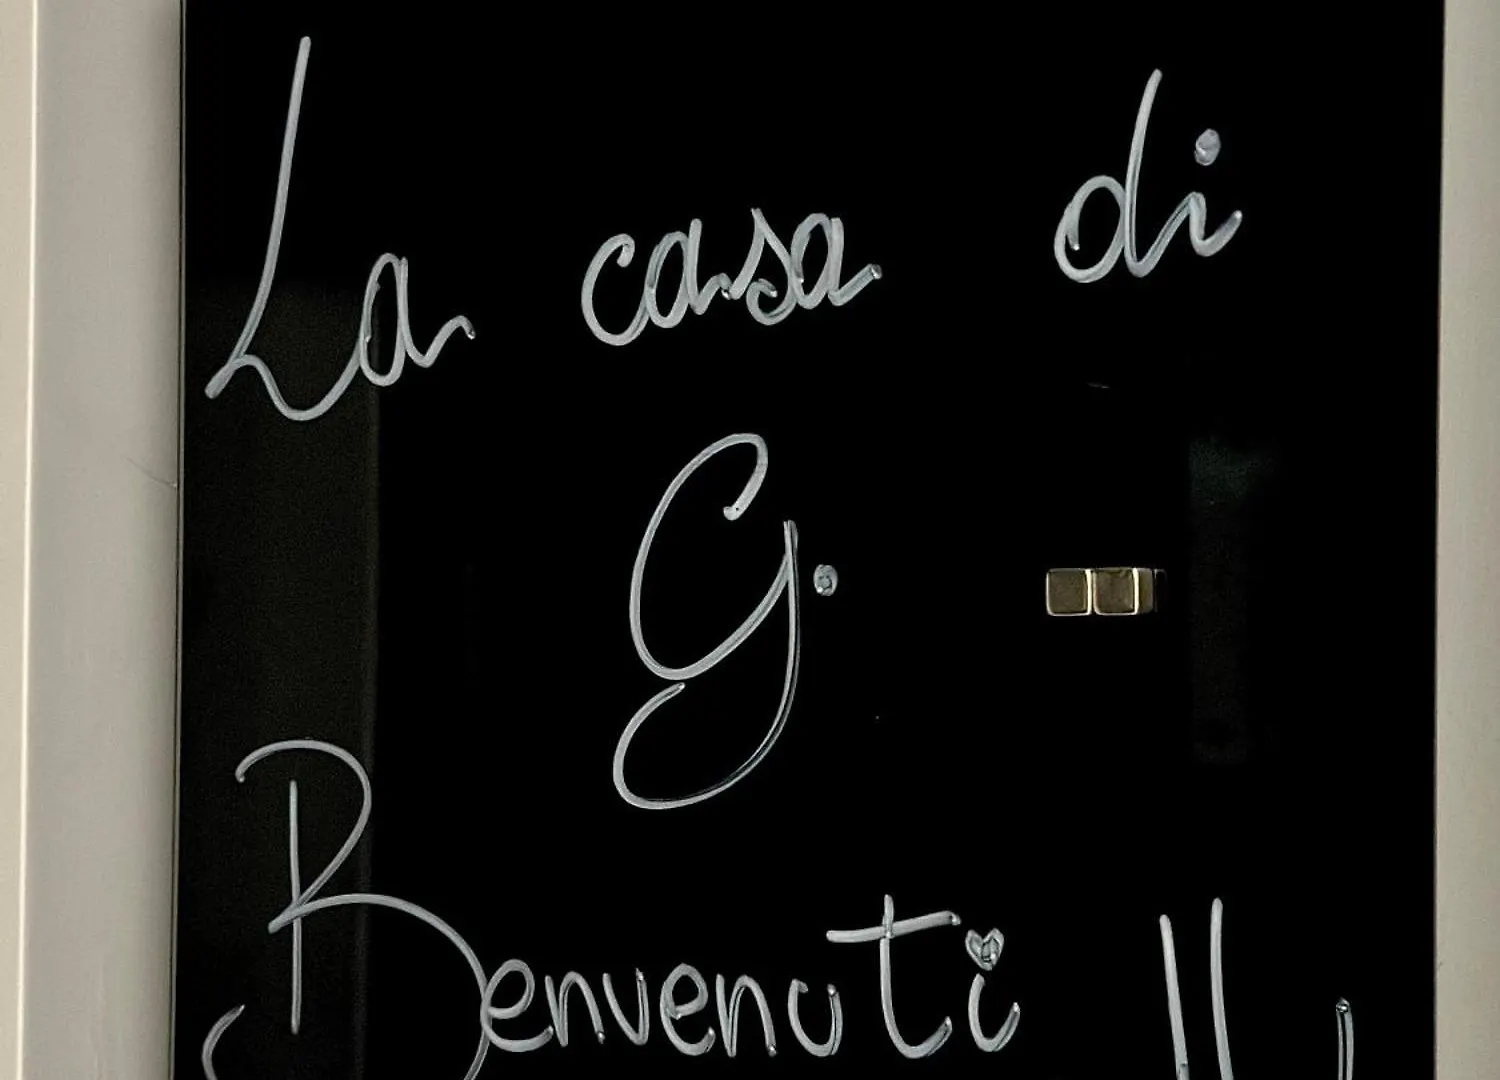 La casa di
G.
Benvenuti